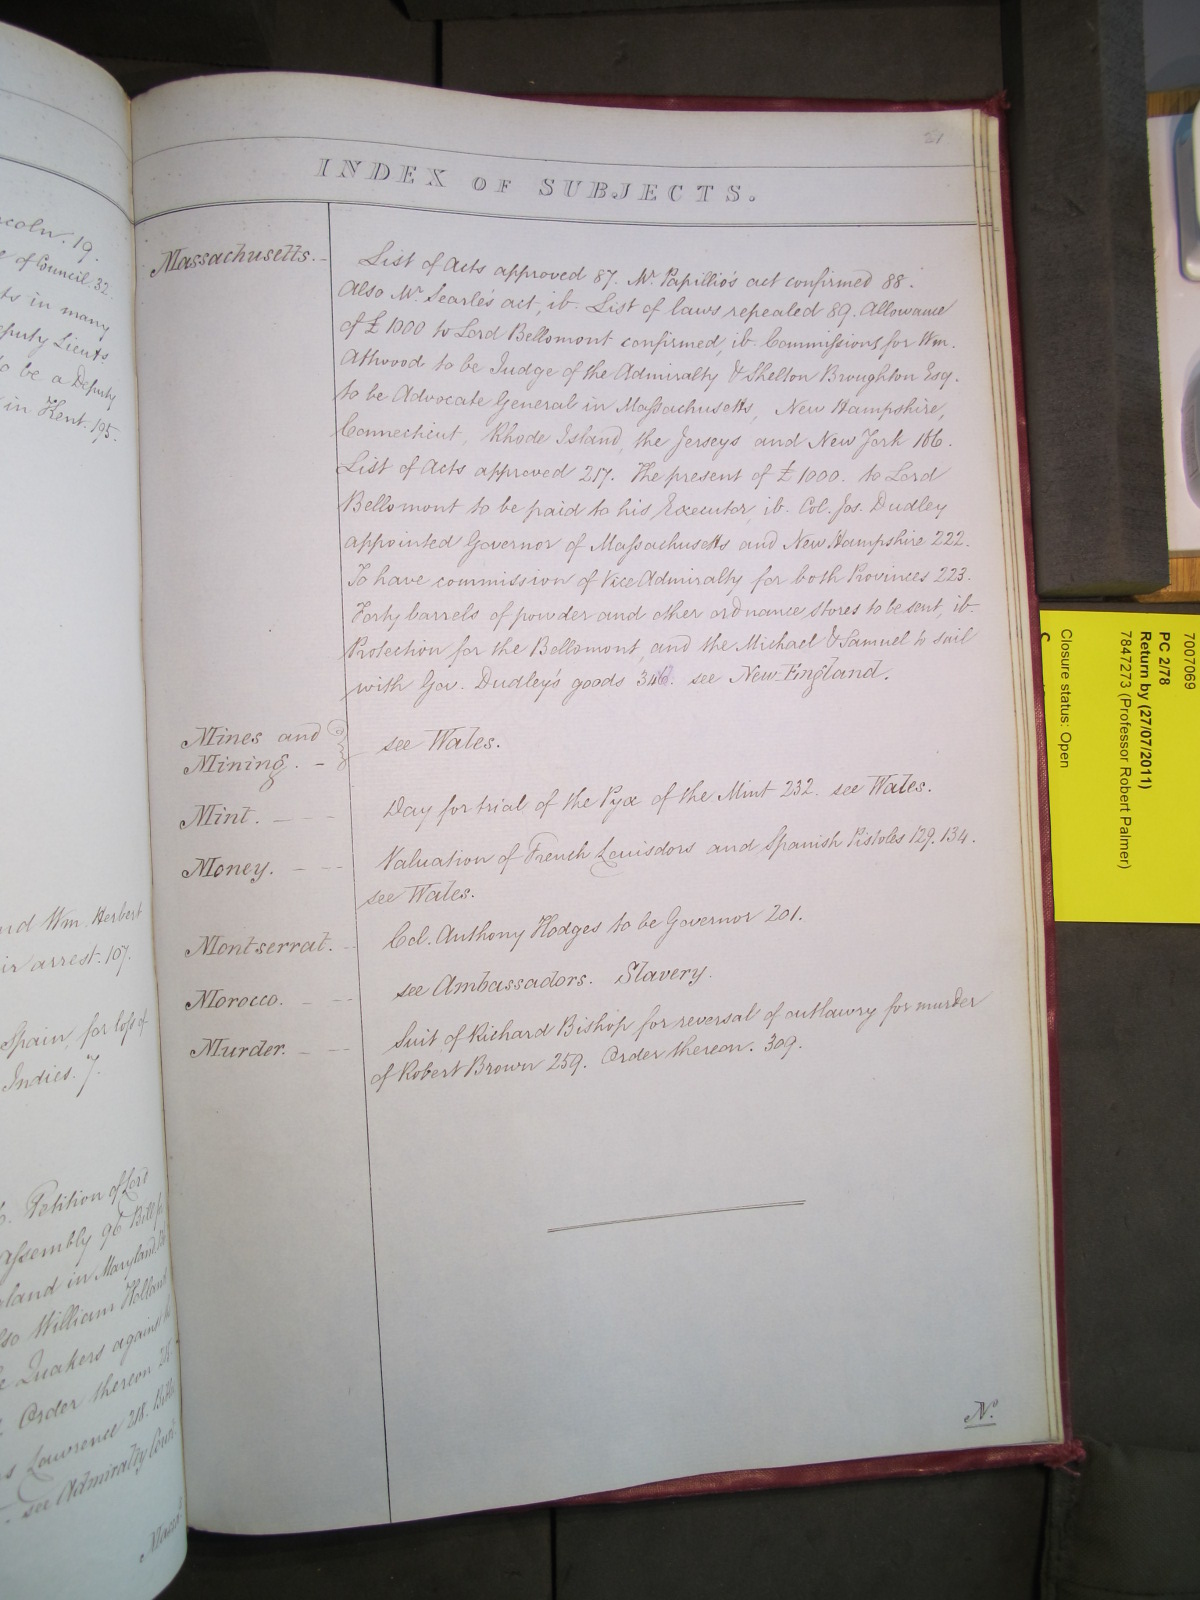 coln. 19.
of Council. 32.
ts in many
puty Lieuts
o be a Deputy
in Kent. 195.
nd Wm. Herbert
ir arrest. 107.
Spain, for loss of
Indies. 7.
Petition of Lord
Assembly 96 Bill
land in Maryland
William Holland
Quakers against
Order thereon
Lawrence 218.
see Admiralty Court.
INDEX OF SUBJECTS.
Massachusetts. -
List of Acts approved 87. Mr. Papillio's act confirmed 88.
Also Mr. Searle's act, ib. List of laws repealed 89. Allowance
of £1000 to Lord Bellomont confirmed, ib. Commissions for Wm.
Athwood to be Judge of the Admiralty & Shelton Broughton Esq.
to be Advocate General in Massachusetts, New Hampshire,
Connecticut, Rhode Island, the Jerseys and New York 186.
List of Acts approved 217. The present of £1000. to Lord
Bellomont to be paid to his Executor, ib. Col. Jos. Dudley
appointed Governor of Massachusetts and New Hampshire 222.
To have commission of Vice Admiralty for both Provinces 223.
Forty barrels of powder and other ordnance stores to be sent, ib.
Protection for the Bellomont, and the Michael & Samuel to sail
with Gov. Dudley's goods 346. see New England.
Mines and
Mining. -
see Wales.
Mint. - - -
Day for trial of the Pyx of the Mint 232. see Wales.
Money. - - -
Valuation of French Louisdors and Spanish Pistoles 129. 134.
see Wales.
Montserrat. -
Col. Anthony Hodges to be Governor 201.
Morocco. - - -
see Ambassadors. Slavery.
Murder. - - -
Suit of Richard Bishop for reversal of outlawry for murder
of Robert Brown 259. Order thereon. 309.
N.
7007069
PC 2/78
Return by (27/07/2011)
7847273 (Professor Robert Palmer)
Closure status: Open